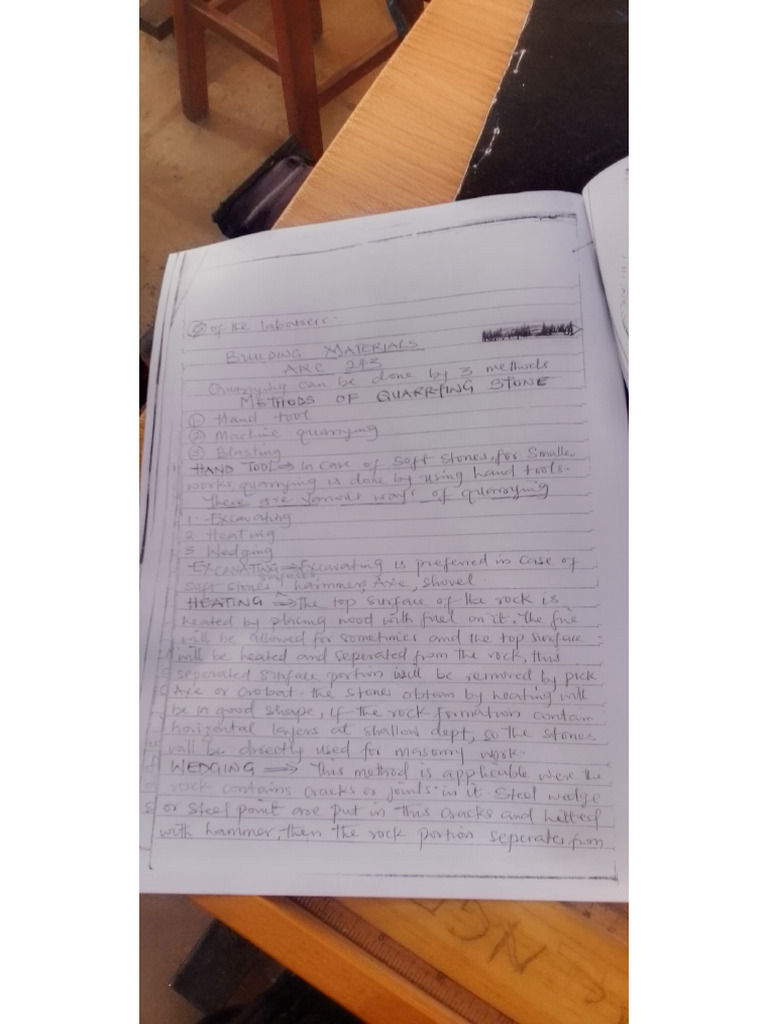 of the labourers.
BUILDING MATERIALS
ARC 243
Quarrying can be done by 3 methods
METHODS OF QUARRYING STONE
① Hand tool
② Machine quarrying
③ Blasting
HAND TOOL ⇒ In case of soft stones, for smaller
works, quarrying is done by using hand tools.
There are various ways of quarrying
1. Excavating
2 Heating
3 Wedging
EXCAVATING ⇒ Excavating is preferred in case of
surfaces
soft stones, hammer, Axe, shovel.
HEATING ⇒ The top surface of the rock is
heated by placing wood with fuel on it. The fire
will be allowed for sometimes and the top surface
will be heated and seperated from the rock, this
seperated surface portion will be removed by pick
Axe or Crobat. the stones obtain by heating will
be in good shape, if the rock formation contain
horizontal layers at shallow dept, so the stones
will be directly used for masonry work.
WEDGING ⇒ This method is applicable were the
rock contains cracks or joints in it. Steel wedge
or steel point are put in this cracks and hitted
with hammer, then the rock portion seperates from
NGE